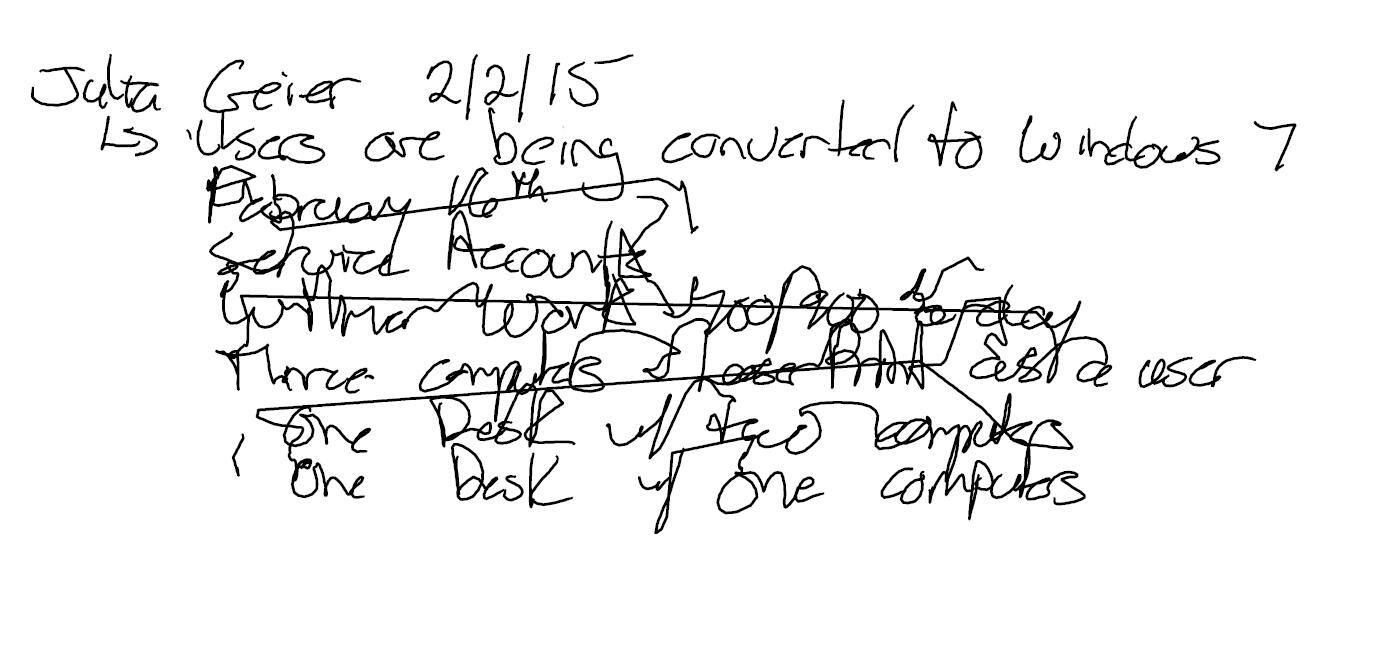 Julia Geier 2/2/15
↳ Users are being converted to Windows 7
February 16th
Service Accounts
work 700/900 day
Three computers user Print a user
One Desk w/ two computers
One Desk w/ one computers